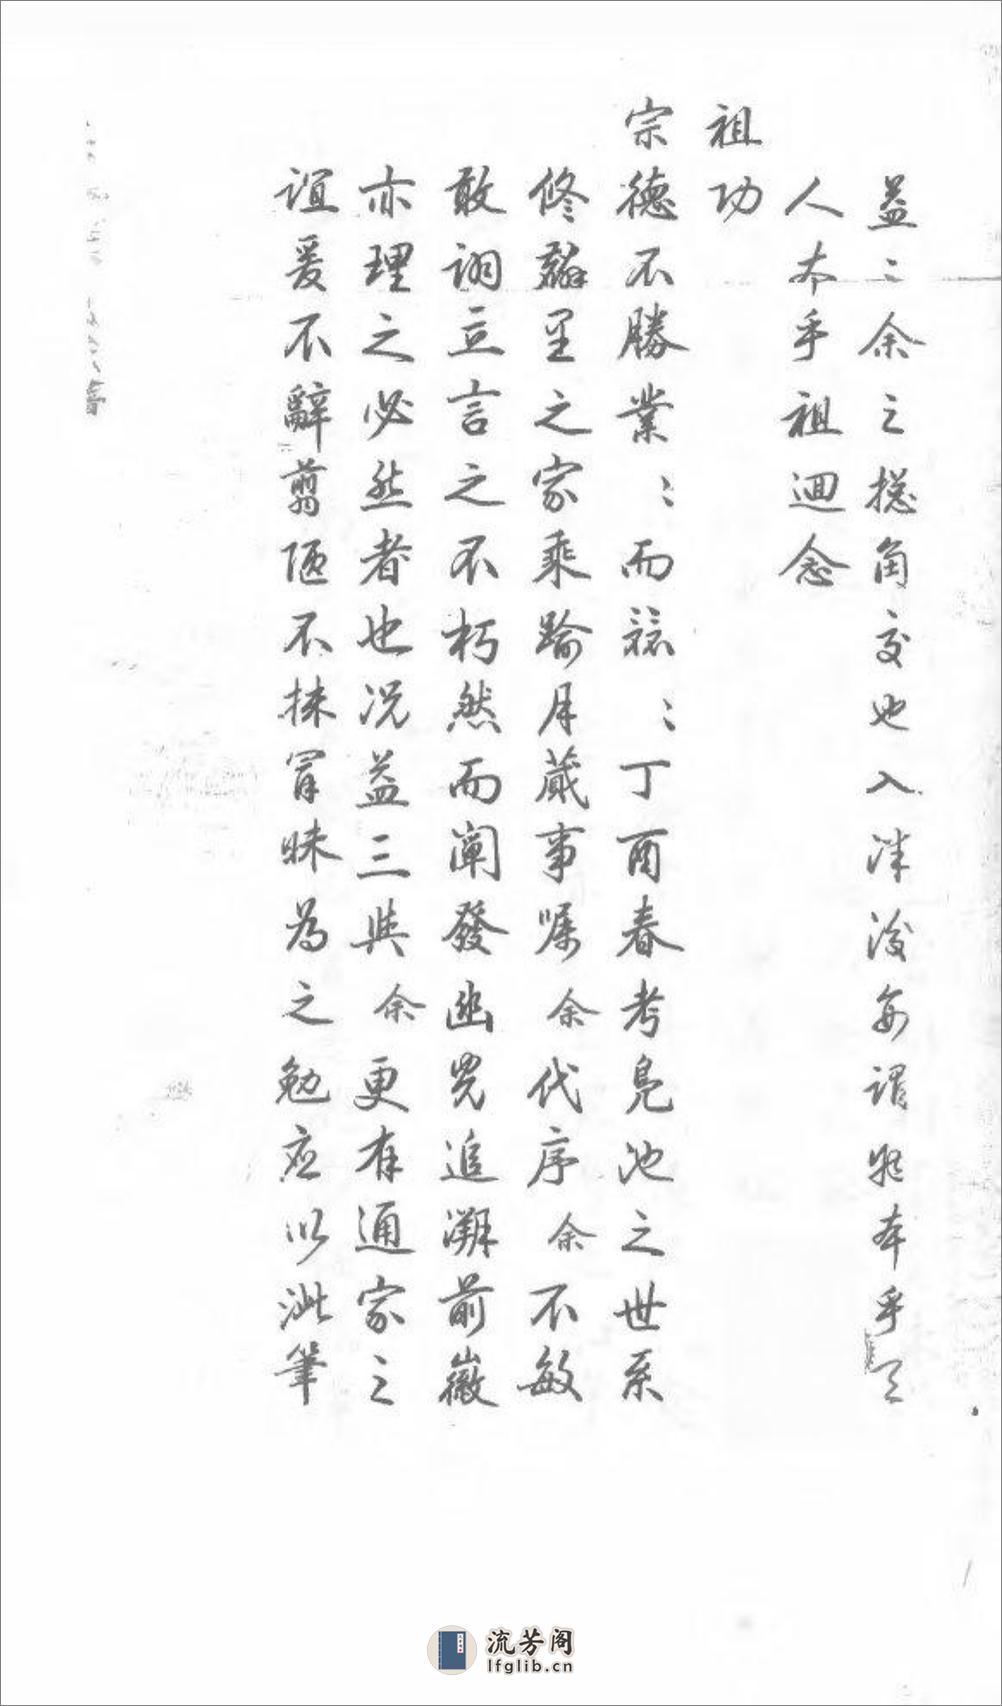 益〻余之摠角交也入泮後每謂物本乎天
人本乎祖迴念
祖功
宗德不勝業〻而兢〻丁酉春考鳧池之世系
修辭里之家乘踰月蕆事囑余代序余不敏
敢詡立言之不朽然而闡發幽光追溯前徽
亦理之必然者也况益三與余更有通家之
誼爰不辭翦陋不揣冒昧為之勉應以泚筆
流芳阁
lfglib.cn